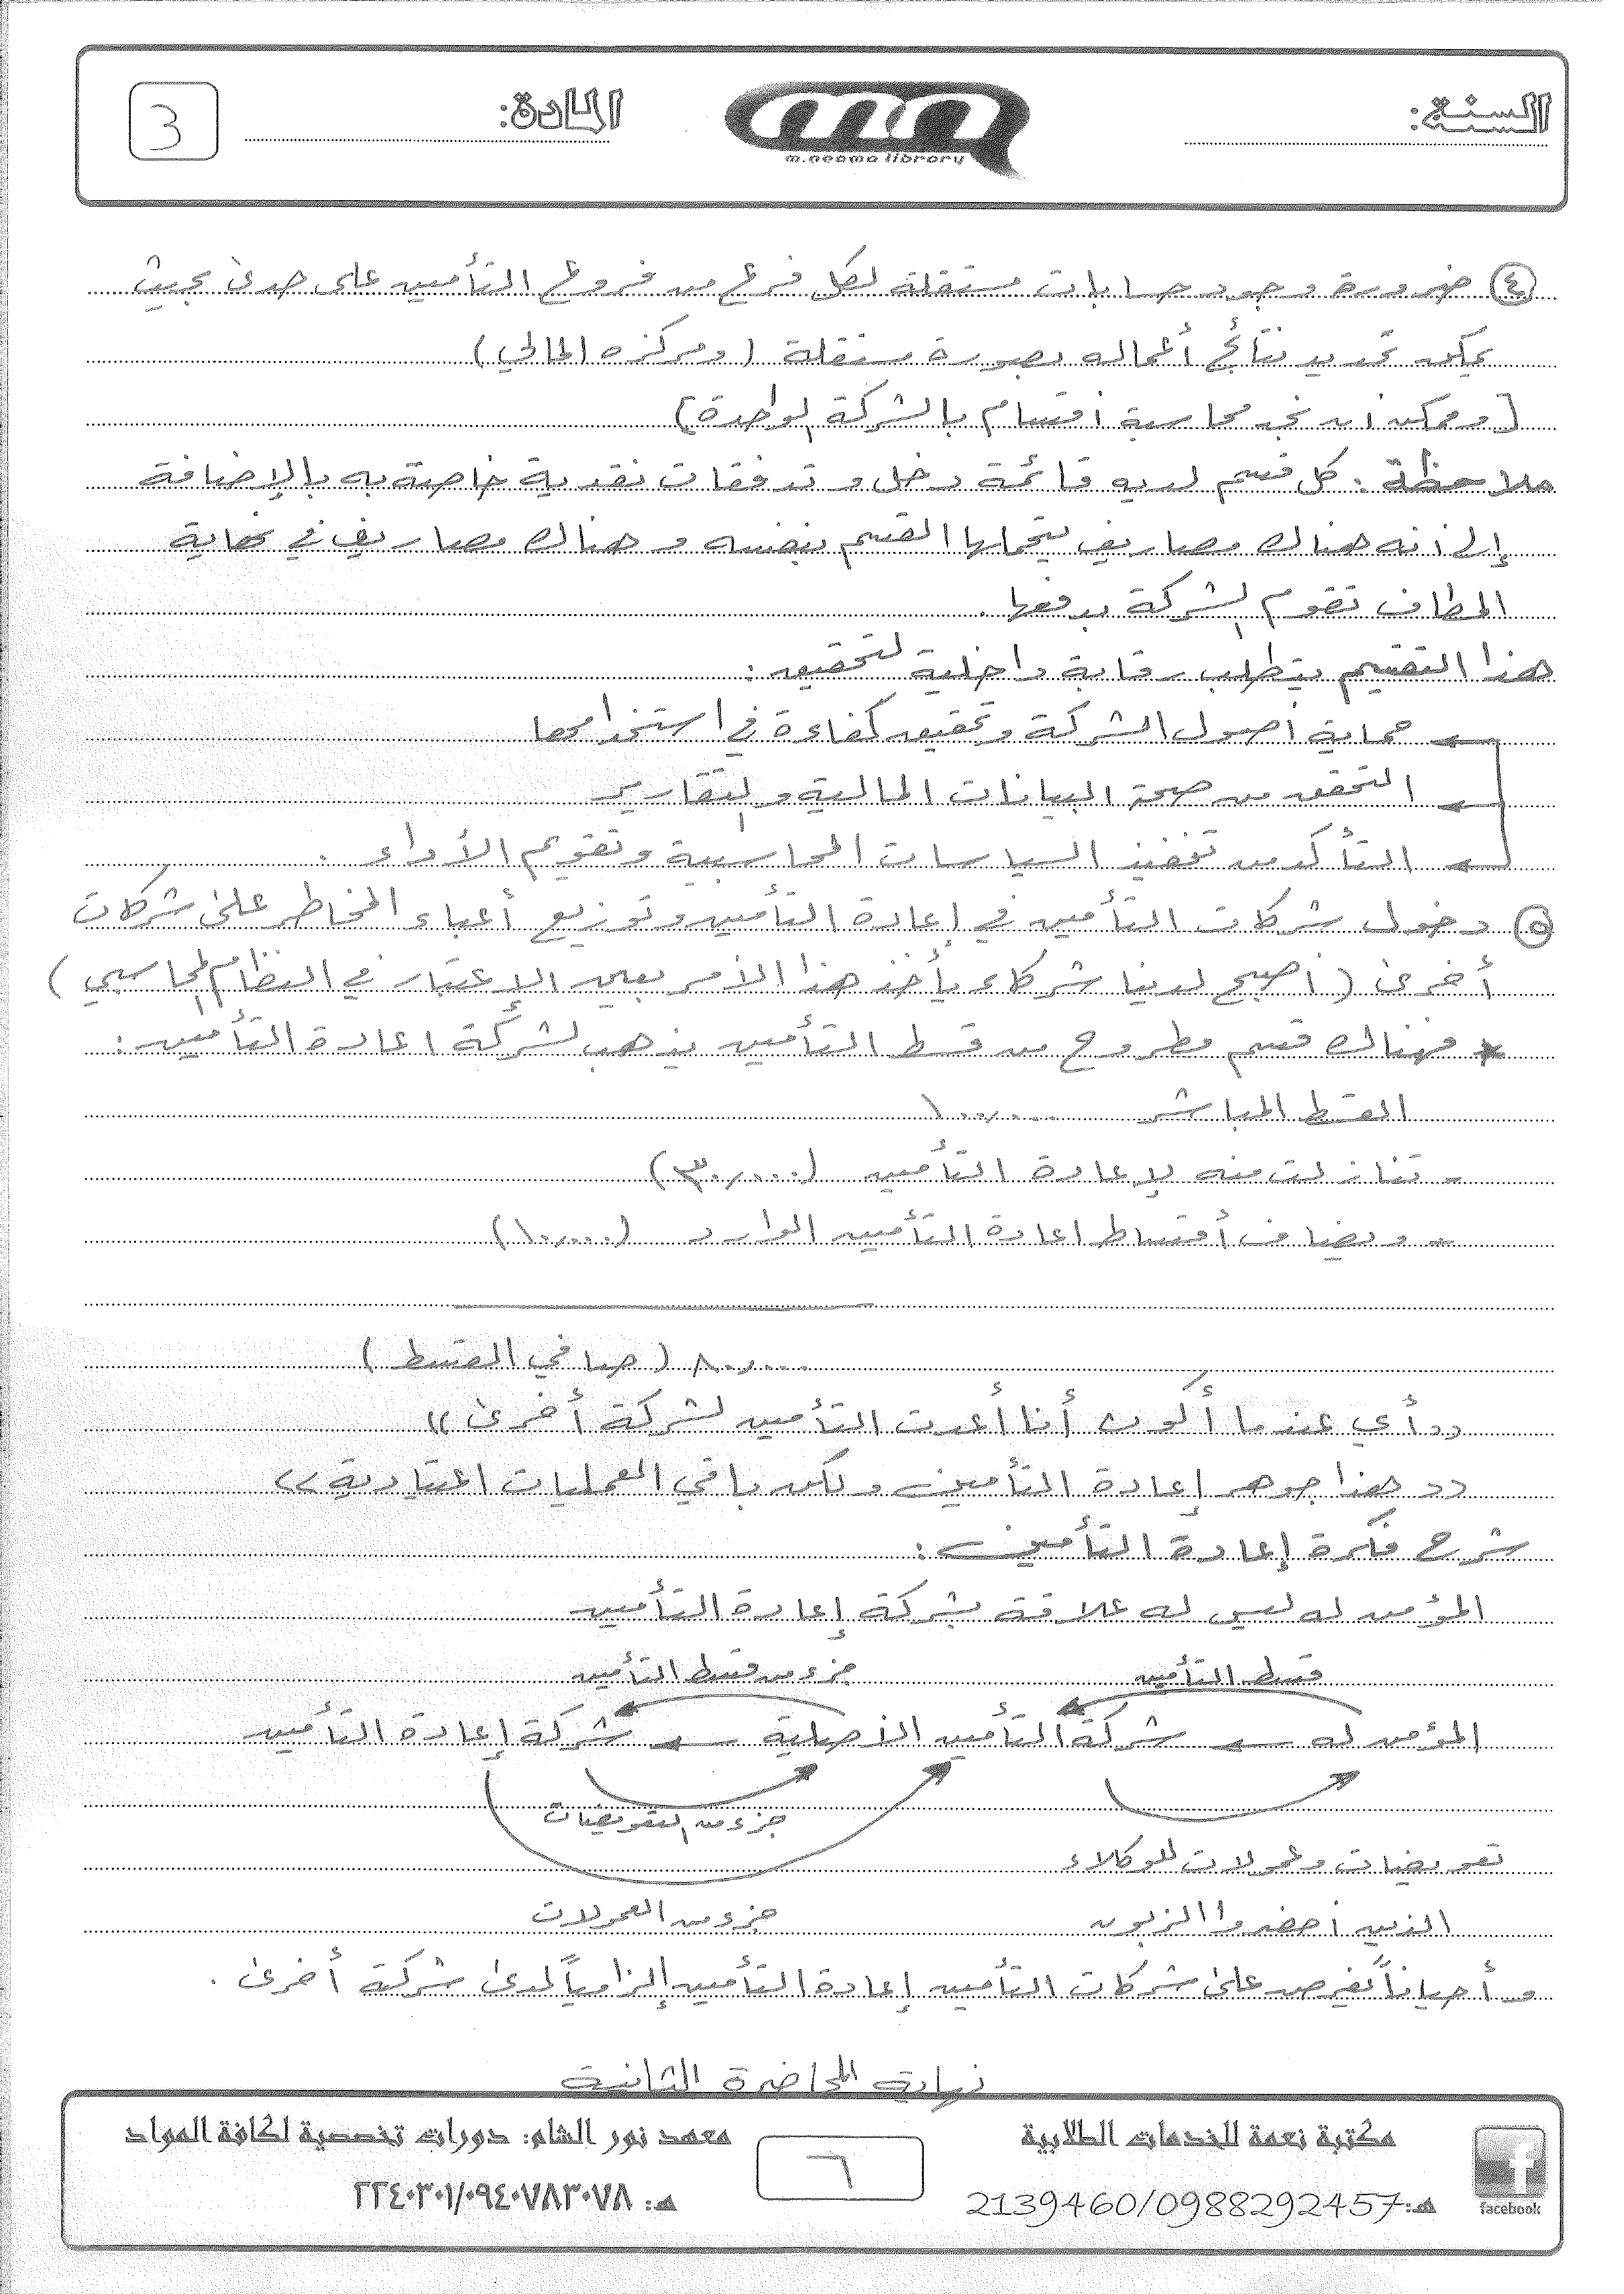 السنة:
m.neama library
المادة:
3
④ ضرورة وجود حسابات مستقلة لكل فرع من فروع التأمين على حدى بحيث
يمكن تحديد نتائج أعماله بصورة مستقلة (ومركزه المالي)
[وممكن ان نجد محاسبة اقسام بالشركة الواحدة]
ملاحظة: كل قسم لديه قائمة دخل و تدفقات نقدية خاصة به بالإضافة
إلى انه هناك مصاريف يتحملها القسم بنفسه وهناك مصاريف في نهاية
المطاف تقوم الشركة بدفعها.
هذا التقسيم يتطلب رقابة داخلية لتحقيق:
حماية اصول الشركة وتحقيق كفاءة في استخدامها
التحقق من صحة البيانات المالية والتقارير
التأكد من تنفيذ السياسات المحاسبية وتقويم الأداء.
⑤ دخول شركات التأمين في إعادة التأمين وتوزيع أعباء المخاطر على شركات
أخرى (اصبح لدينا شركاء يأخذ هذا الأمر بعين الإعتبار في النظام المحاسبي)
* فهناك قسم مطروح من قسط التأمين يذهب لشركة اعادة التأمين:
القسط المباشر ١٠٠,٠٠٠
- تنازلت منه لإعادة التأمين (٣٠,٠٠٠)
- ويضاف أقساط اعادة التأمين الوارد (١٠,٠٠٠)
٨٠,٠٠٠ (صافي القسط)
((أي عندما أكون أنا أعدت التأمين لشركة أخرى))
((هذا جوهر إعادة التأمين ولكن باقي العمليات اعتيادية))
شرح فكرة إعادة التأمين:
المؤمن له ليس له علاقة بشركة إعادة التأمين
قسط التأمين جزء من قسط التأمين
المؤمن له ← شركة التأمين الأصلية ← شركة إعادة التأمين
جزء من التعويضات
تعويضات وعمولات للوكلاء
الذين احضروا الزبون جزء من العمولات
و أحياناً يُفرض على شركات التأمين إعادة التأمين إلزامياً لدى شركة أخرى.
نهاية المحاضرة الثانية
مكتبة نعمة للخدمات الطلابية
معهد نور الشام: دورات تخصصية لكافة المواد
٦
هـ: 2139460/0988292457
هـ: ٢٢٤٠٣٠١/٠٩٤٠٧٨٣٠٧٨
facebook